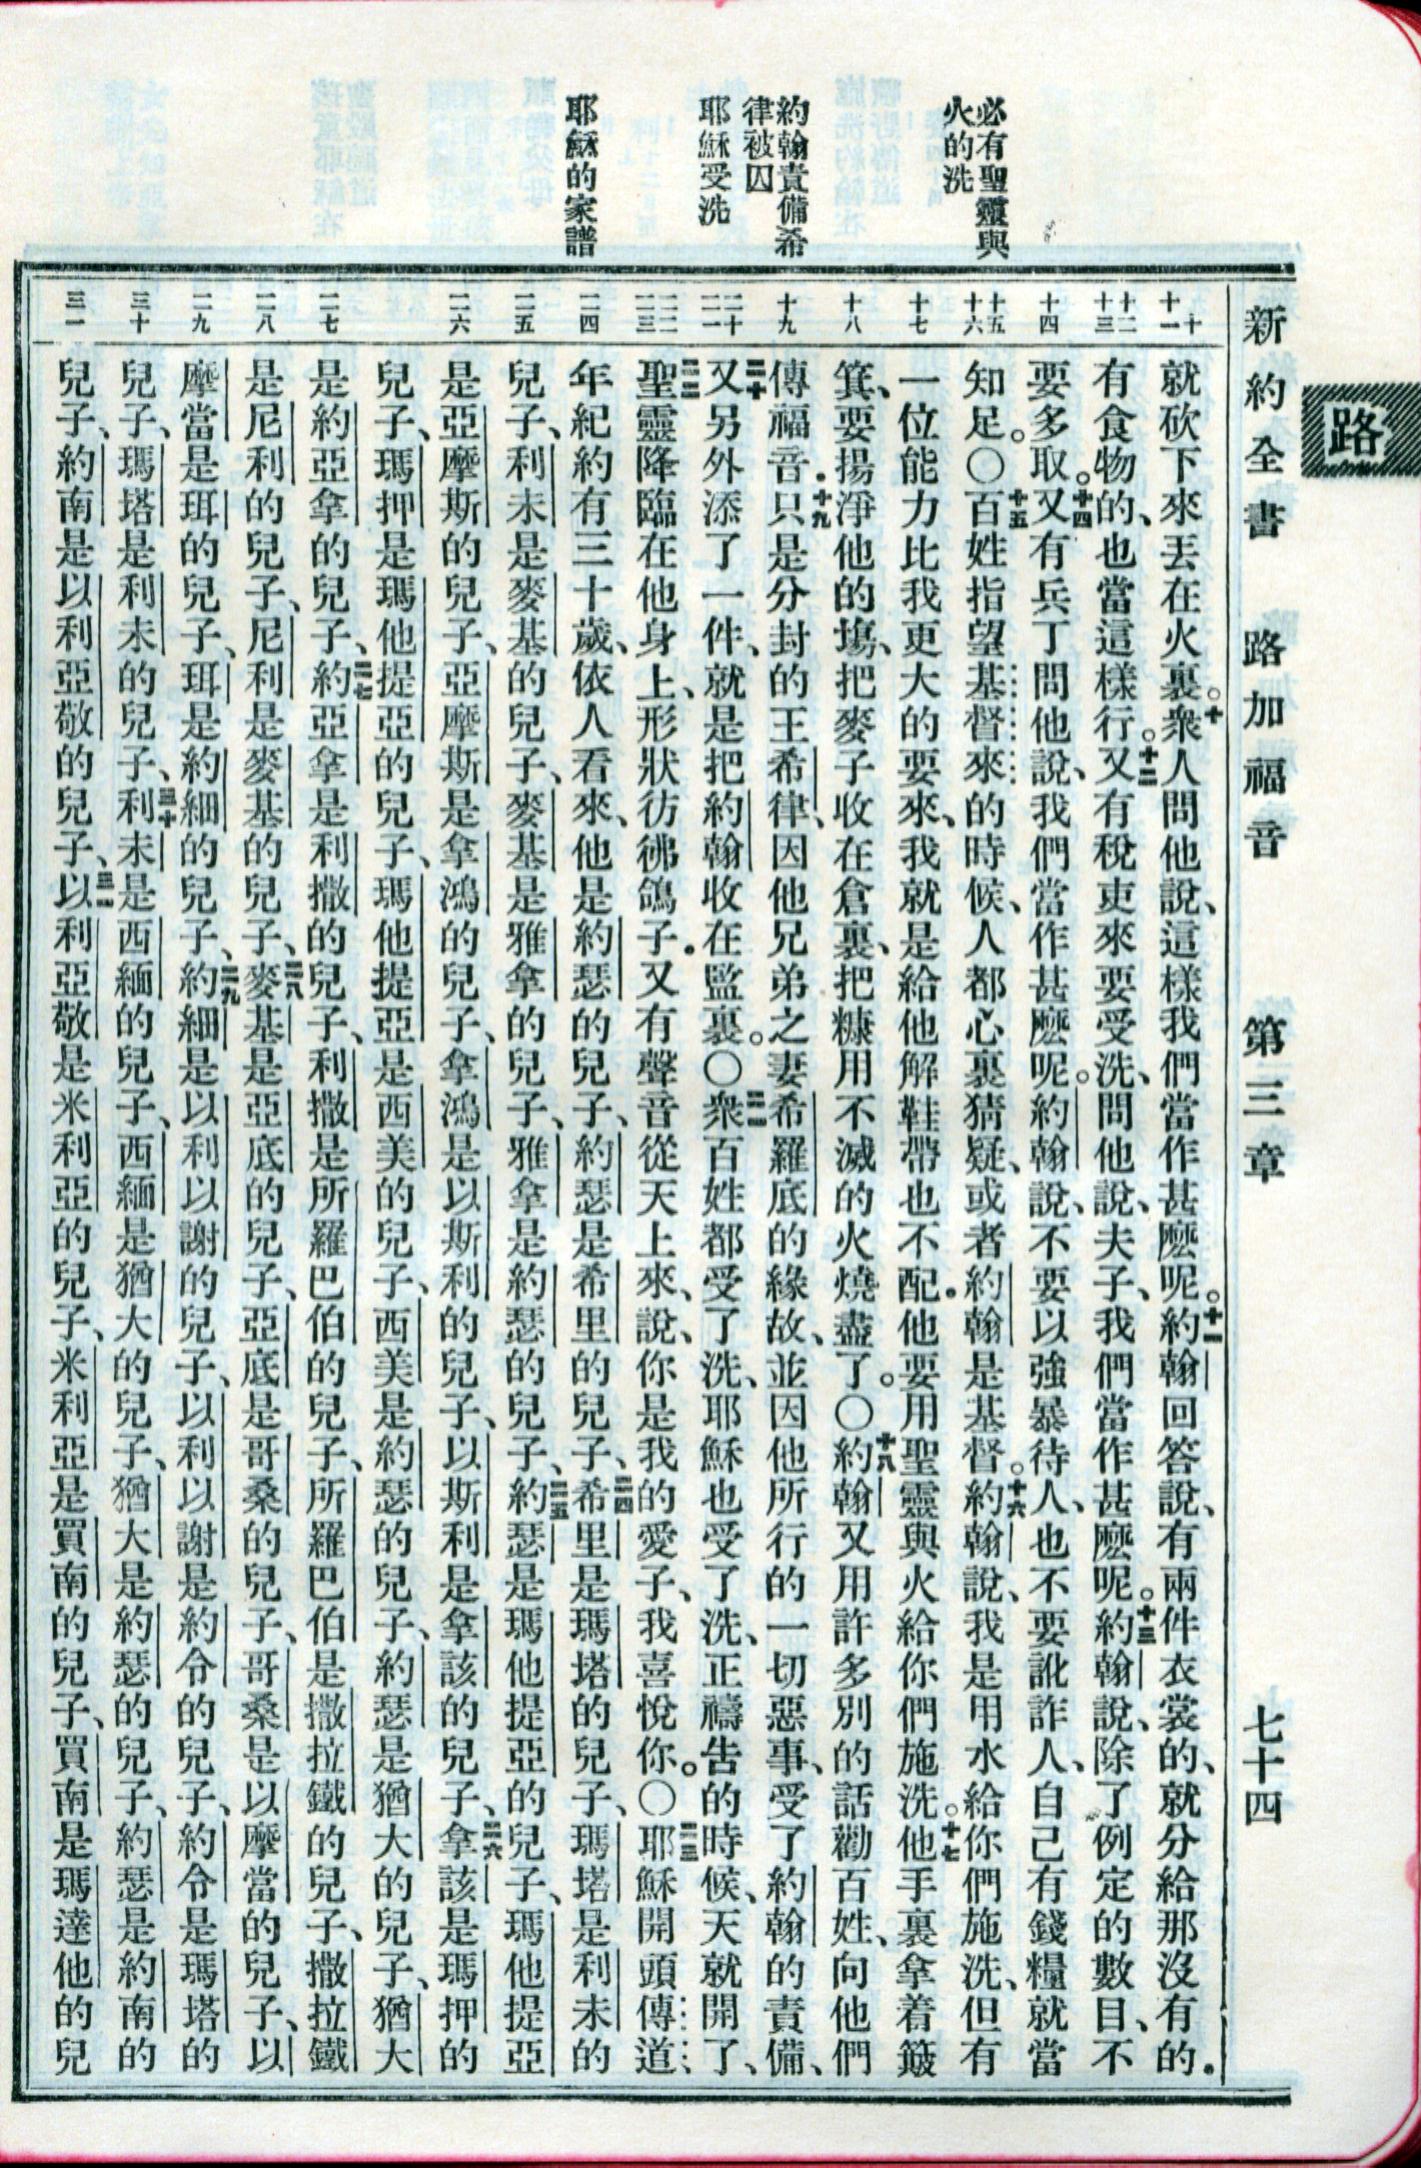 路
新約全書 路加福音 第三章 七十四
必有聖靈與
火的洗
約翰責備希
律被囚
耶穌受洗
耶穌的家譜
十
十一
十二
十三
十四
十五
十六
十七
十八
十九
二十
二一
二二
二三
二四
二五
二六
二七
二八
二九
三十
三一
就砍下來丟在火裏。十衆人問他說、這樣我們當作甚麽呢。十一約翰回答說、有兩件衣裳的、就分給那沒有的.
有食物的、也當這樣行。十二又有稅吏來要受洗、問他說、夫子、我們當作甚麽呢。十三約翰說、除了例定的數目、不
要多取。十四又有兵丁問他說、我們當作甚麽呢。約翰說、不要以強暴待人、也不要訛詐人、自己有錢糧就當
知足。〇十五百姓指望基督來的時候、人都心裏猜疑、或者約翰是基督。十六約翰說、我是用水給你們施洗、但有
一位能力比我更大的要來、我就是給他解鞋帶也不配.他要用聖靈與火給你們施洗。十七他手裏拿着簸
箕、要揚淨他的塲、把麥子收在倉裏、把糠用不滅的火燒盡了。〇十八約翰又用許多別的話勸百姓、向他們
傳福音.十九只是分封的王希律、因他兄弟之妻希羅底的緣故、並因他所行的一切惡事、受了約翰的責備、
二十又另外添了一件、就是把約翰收在監裏。〇二一衆百姓都受了洗、耶穌也受了洗、正禱告的時候、天就開了、
二二聖靈降臨在他身上、形狀彷彿鴿子.又有聲音從天上來、說、你是我的愛子、我喜悅你。〇二三耶穌開頭傳道、
年紀約有三十歲、依人看來、他是約瑟的兒子、約瑟是希里的兒子、二四希里是瑪塔的兒子、瑪塔是利未的
兒子、利未是麥基的兒子、麥基是雅拿的兒子、雅拿是約瑟的兒子、二五約瑟是瑪他提亞的兒子、瑪他提亞
是亞摩斯的兒子、亞摩斯是拿鴻的兒子、拿鴻是以斯利的兒子、以斯利是拿該的兒子、二六拿該是瑪押的
兒子、瑪押是瑪他提亞的兒子、瑪他提亞是西美的兒子、西美是約瑟的兒子、約瑟是猶大的兒子、猶大
是約亞拿的兒子、二七約亞拿是利撒的兒子、利撒是所羅巴伯的兒子、所羅巴伯是撒拉鐵的兒子、撒拉鐵
是尼利的兒子、尼利是麥基的兒子、二八麥基是亞底的兒子、亞底是哥桑的兒子、哥桑是以摩當的兒子、以
摩當是珥的兒子、珥是約細的兒子、二九約細是以利以謝的兒子、以利以謝是約令的兒子、約令是瑪塔的
兒子、瑪塔是利未的兒子、三十利未是西緬的兒子、西緬是猶大的兒子、猶大是約瑟的兒子、約瑟是約南的
兒子、約南是以利亞敬的兒子、三一以利亞敬是米利亞的兒子、米利亞是買南的兒子、買南是瑪達他的兒